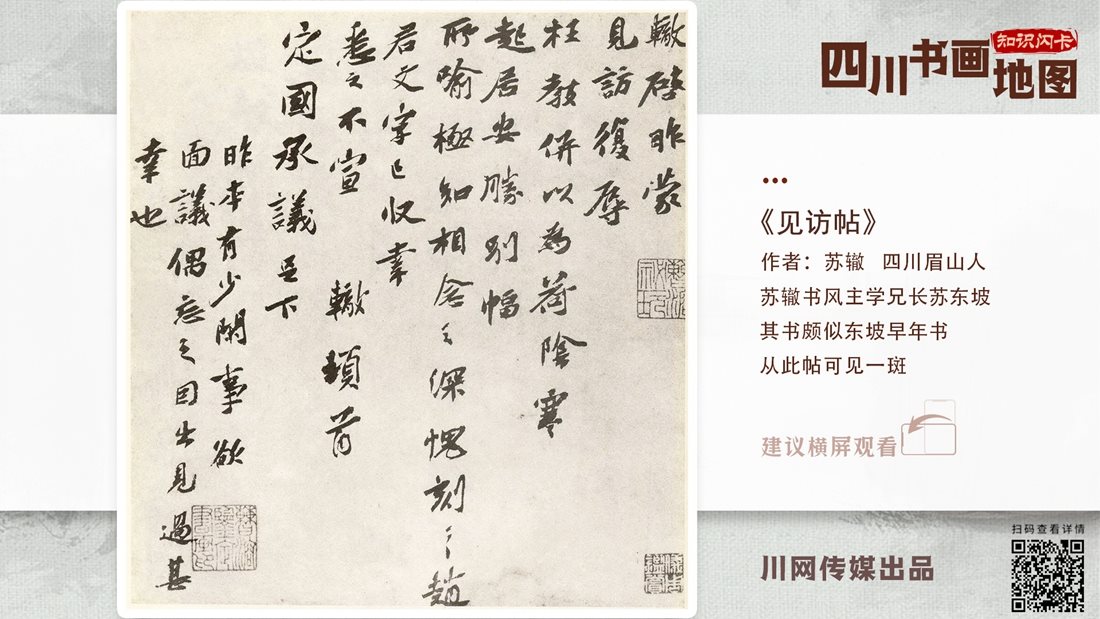 轍啓昨蒙
見訪復辱
枉教併以為荷陰寒
起居安勝别幅
所喻極知相念之深愧刻〻趙
君文字已收幸
悉之不宣 轍頓首
定國承議足下
昨本有少閑事欲
面議偶忘之因出見過甚
幸也
四川书画地图
知识闪卡
《见访帖》
作者：苏辙 四川眉山人
苏辙书风主学兄长苏东坡
其书颇似东坡早年书
从此帖可见一斑
建议横屏观看
川网传媒出品
扫码查看详情